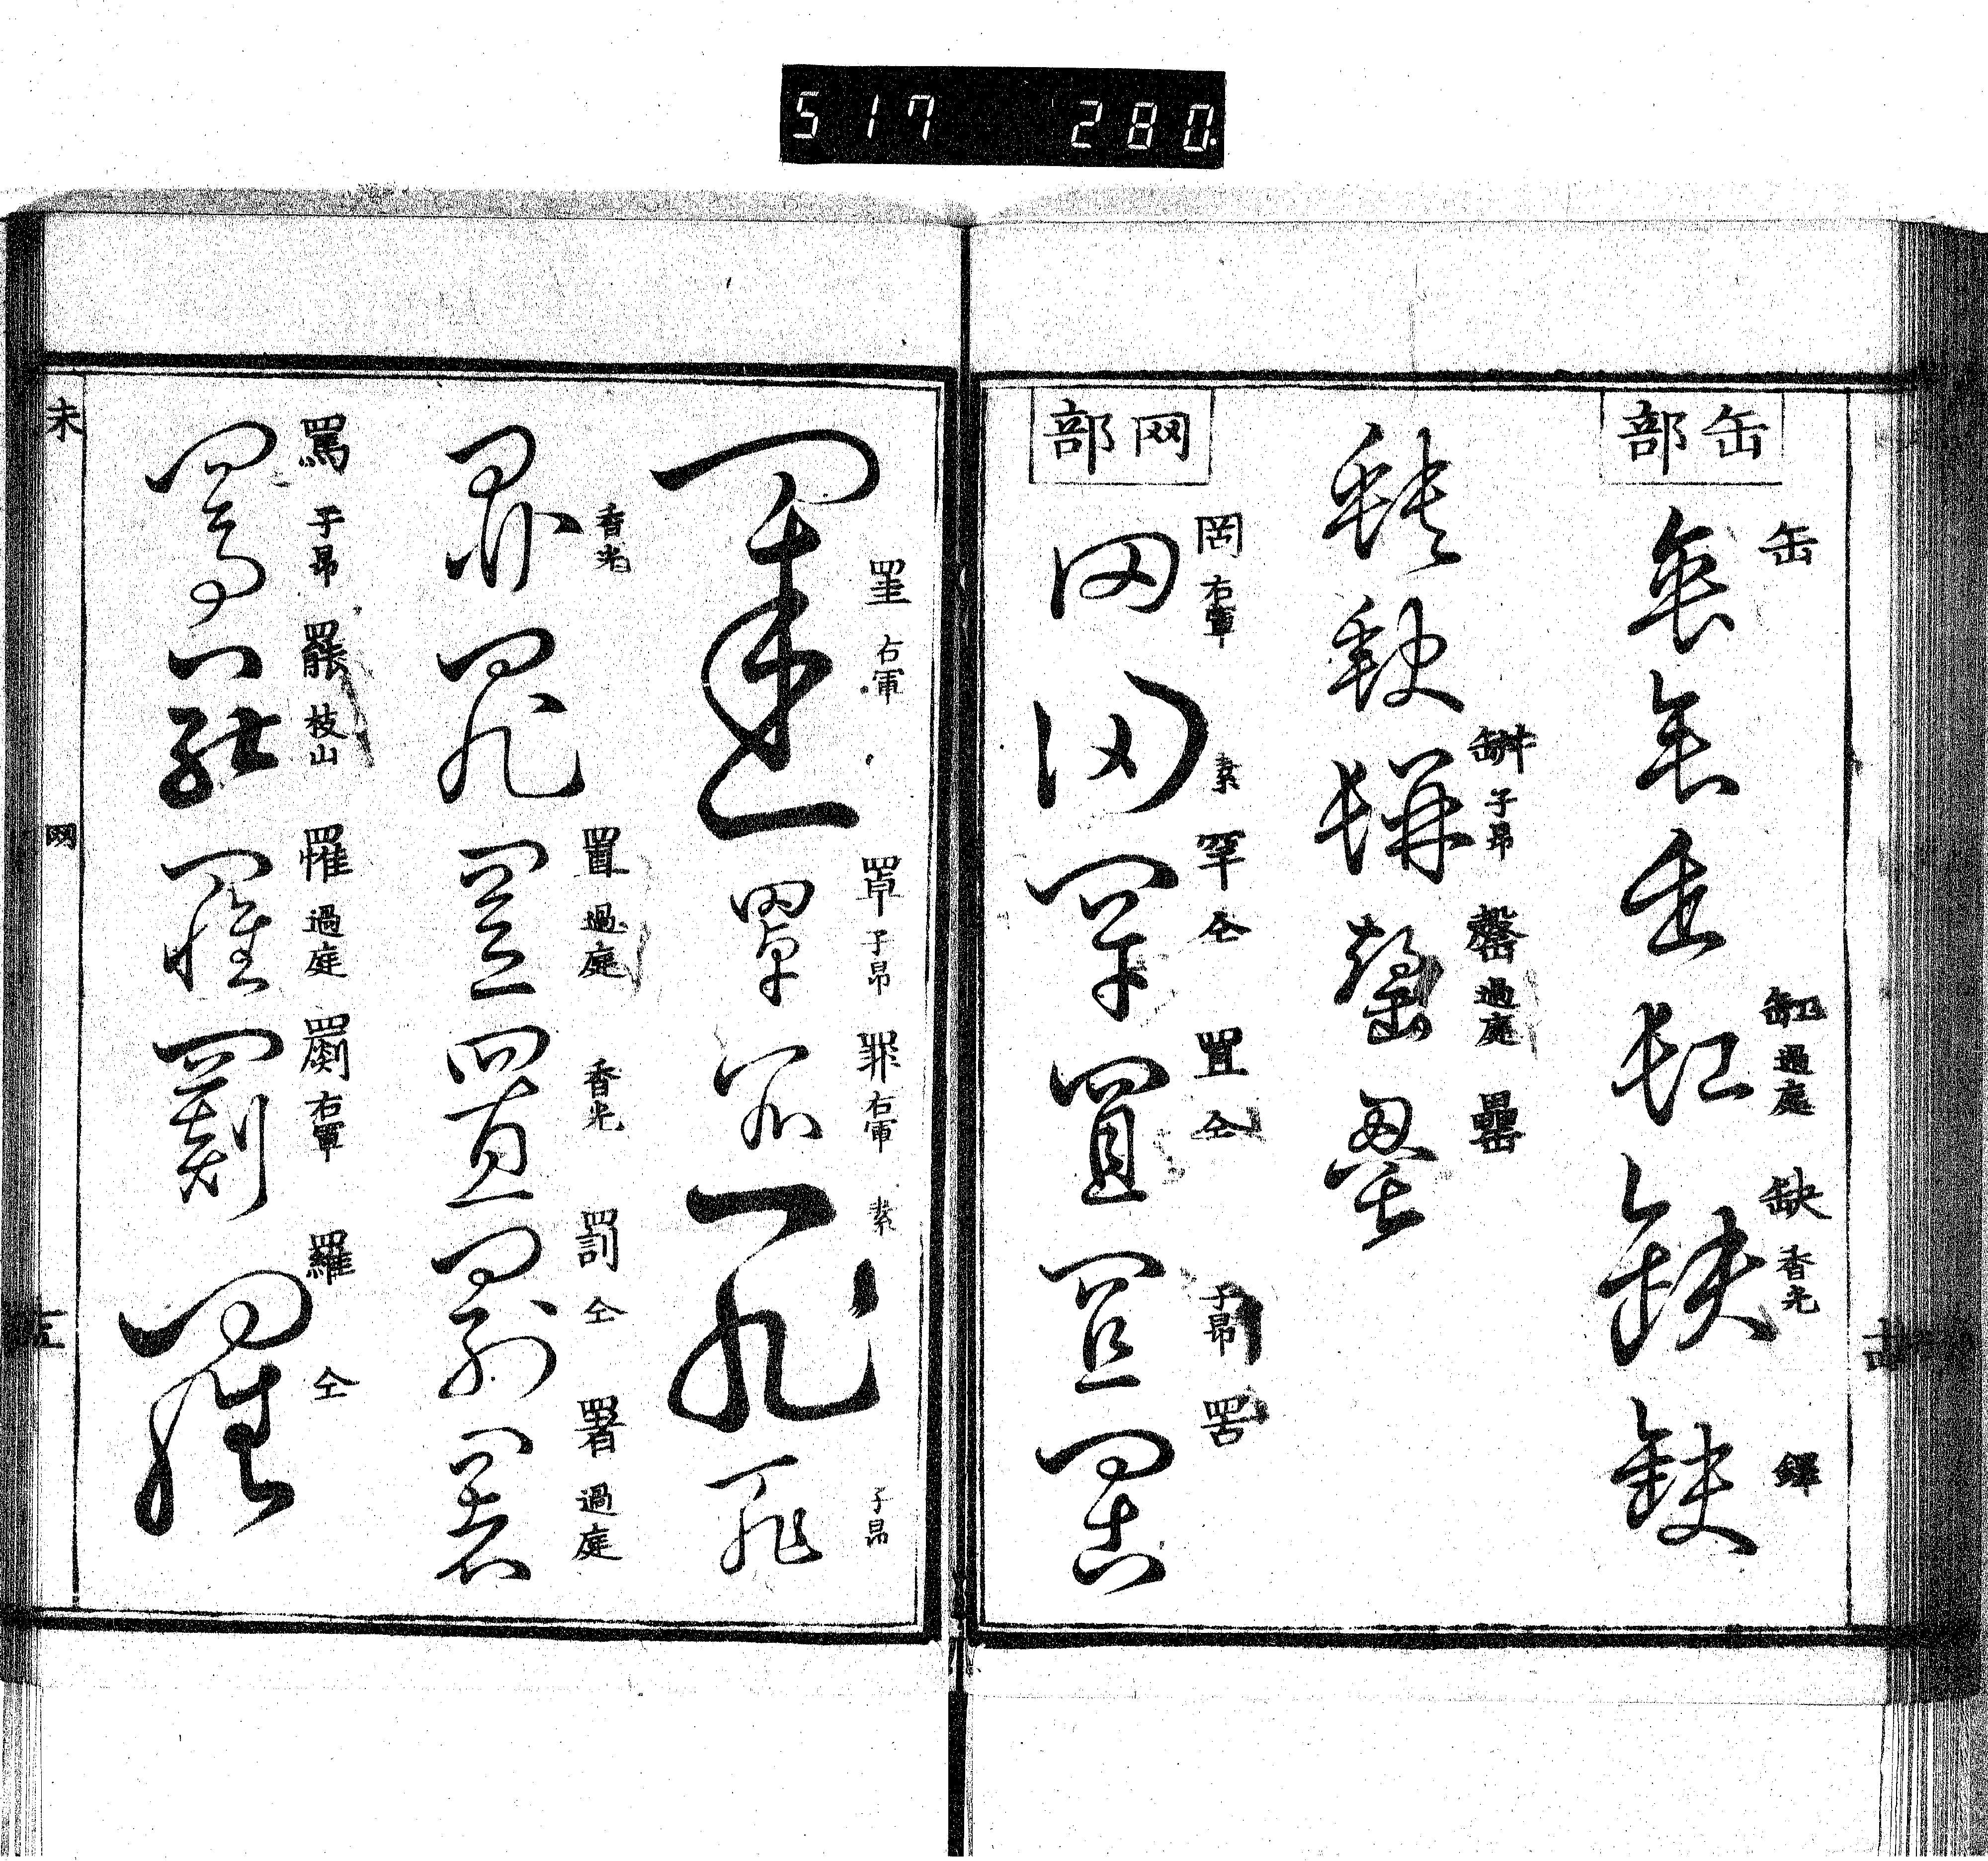 517 280
缶部
缶
缸 過庭
缺 香光
鐸
缾 子昂
罄 過庭
罍
网部
罔 右軍
素
罕 仝
罝 仝
子昂
罟
罣 右軍
罩 子昂
罪 右軍
素
子昂
香光
置 過庭
香光
罰 仝
署 過庭
罵 子昂
罷 枝山
罹 過庭
罽 右軍
羅 仝
未
网